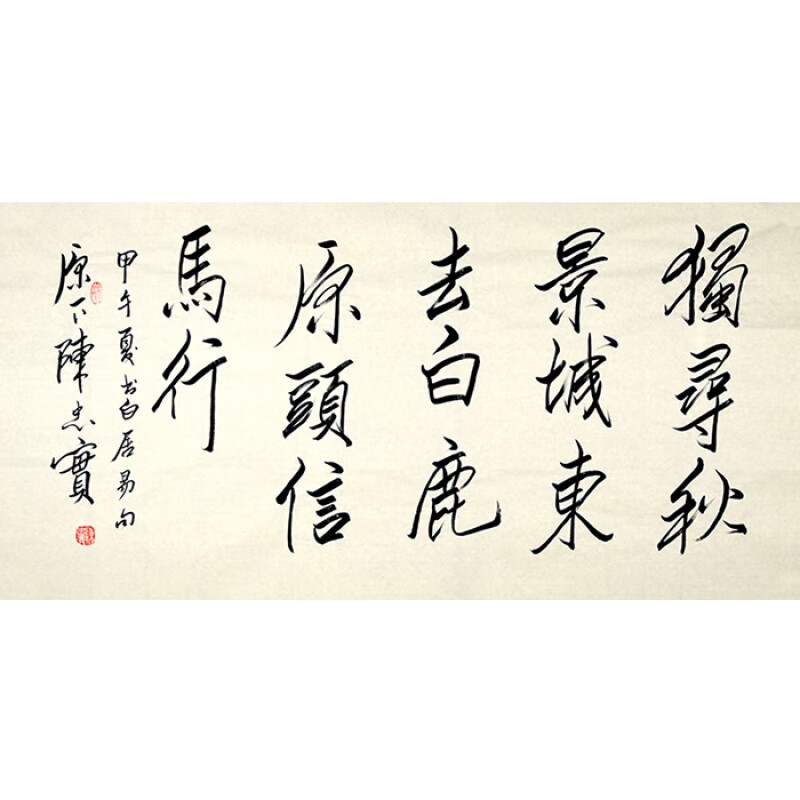 獨尋秋
景城東
去白鹿
原頭信
馬行
甲午夏书白居易句
原下陳忠實